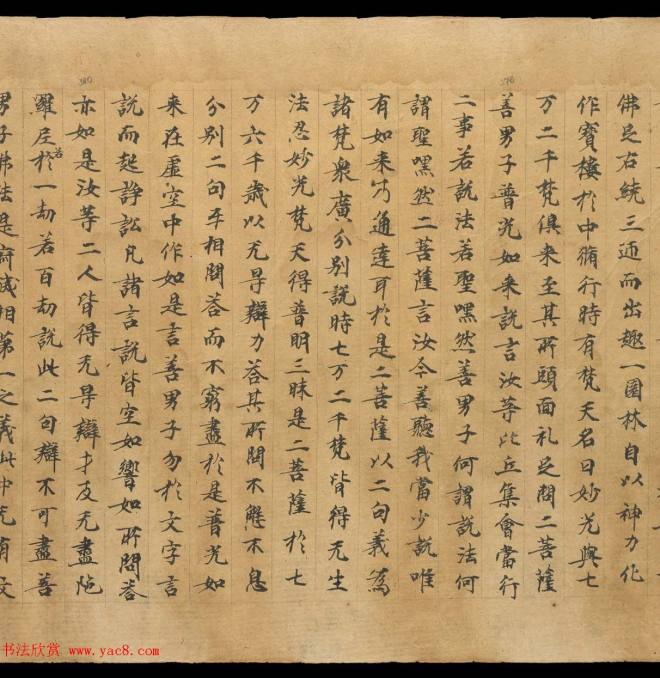 佛足右繞三迊而出趣一園林自以神力化
作寶樓於中脩行時有梵天名曰妙光與七
万二千梵俱来至其所頭面礼足問二菩薩
善男子普光如来說言汝等比丘集會當行
二事若說法若聖嘿然善男子何謂說法何
謂聖嘿然二菩薩言汝今善聽我當少說唯
有如来乃通達耳於是二菩薩以二句義為
諸梵衆廣分別說時七万二千梵皆得无生
法忍妙光梵天得普明三昧是二菩薩於七
万六千歲以无㝵辯力荅其所問不懈不息
分別二句互相問荅而不窮盡於是普光如
来在虛空中作如是言善男子勿於文字言
說而起諍訟凡諸言說皆空如響如所問荅
亦如是汝等二人皆得无㝵辯才及无盡陁
羅尼若於一劫若百劫說此二句辯不可盡善
男子佛法是寂滅相第一之義此中无有文
书法欣赏 www.yac8.com